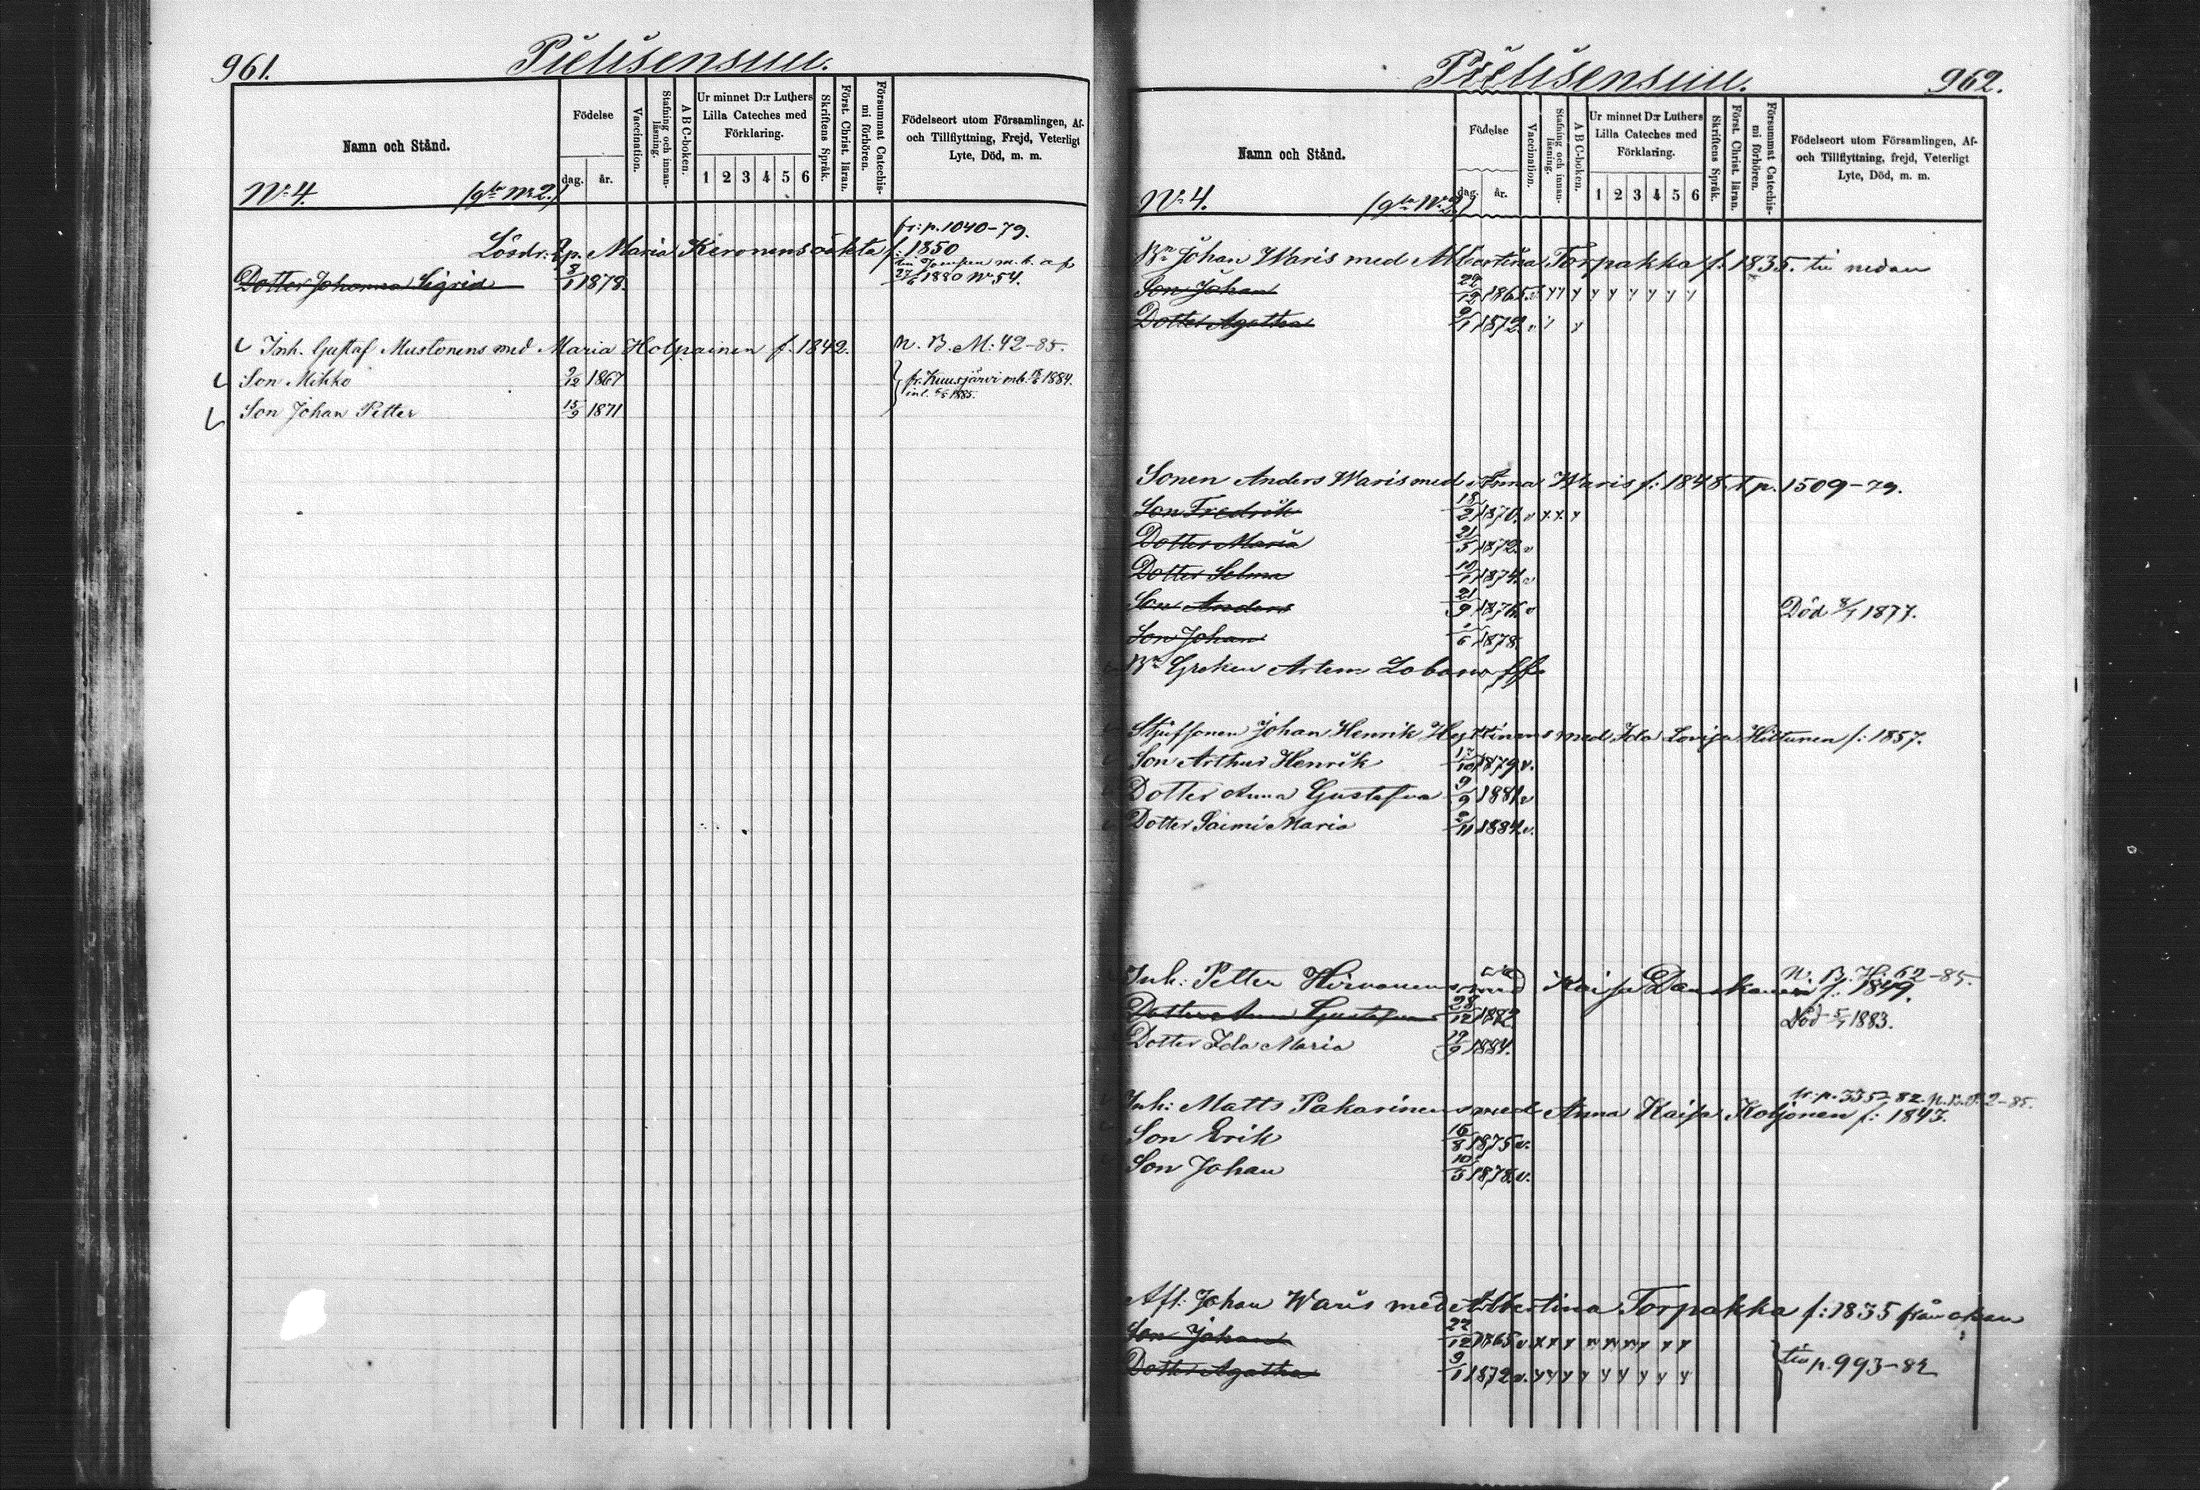 961.
Pielisensuu.
Namn och Stånd.
Födelse
dag.
år.
Vaccination.
Stafning och innan-läsning.
A B C-boken.
Ur minnet D:r Luthers
Lilla Cateches med
Förklaring.
1 2 3 4 5 6
Skriftens Språk.
Först. Christ. läran.
Försummat Catechis-mi förhören.
Födelseort utom Församlingen, Af-
och Tillflyttning, Frejd, Veterligt
Lyte, Död, m. m.
N:4. N:2.
fr: p. 1040-79.
Lösdr: Maria Keronens oäkta f. 1850
Dotter Johanna Sigrid 8/1 1879. 1880 N:54.
Inh. Gustaf Mustonens med Maria Holpainen f. 1842. N. B. M: 42-85.
Son Mikko 9/12 1867 fr. Kuusjärvi mb. 1884.
inl. 1885.
Son Johan Petter 15/9 1871
Pielisensuu.
962.
Namn och Stånd.
Födelse
dag.
år.
Vaccination.
Stafning och innan-läsning.
A B C-boken.
Ur minnet D:r Luthers
Lilla Cateches med
Förklaring.
1 2 3 4 5 6
Skriftens Språk.
Först. Christ. läran.
Försummat Catechis-mi förhören.
Födelseort utom Församlingen, Af-
och Tillflyttning, frejd, Veterligt
Lyte, Död, m. m.
N:4. N:2
Bn Johan Waris med Albertina Torpakka f. 1835. nedan
Son Johan 22/12 1865
Dotter Agatha 9/1 1872
Sonen Anders Waris med Anna Waris f: 1848. p. 1509-79.
Son Fredrik 18/2 1870
Dotter Maria 21/5 1872
Dotter Selma 10/1 1874
Son Anders 21/9 1876 Död 8/1 1877.
Son Johan 1878.
Bn Greken Artem Lobanoff
Stjufsonen Johan Henrik med Ida Lovisa Hiltunen f: 1857.
Son Arthur Henrik 17/10 1879
Dotter Anna Gustafva 9/9 1881
Dotter Saimi Maria 2/11 1884
N. B. H: 62-85.
Inh: Petter Hirvonens med Kaisa f. 1849.
Dotter Anna Gustafva 28/12 1882 Död 5/1 1883.
Dotter Ida Maria 19/9 1884.
Inh: Matts Pakarinens med Anna Kaisa Koljonen f: 1843.
Son Erik 16/8 1875
Son Johan 10/5 1878
Afl. Johan Waris med Albertina Torpakka f: 1835 från
Son Johan 22/12 1865
Dotter Agatha 9/1 1872 p. 993-82